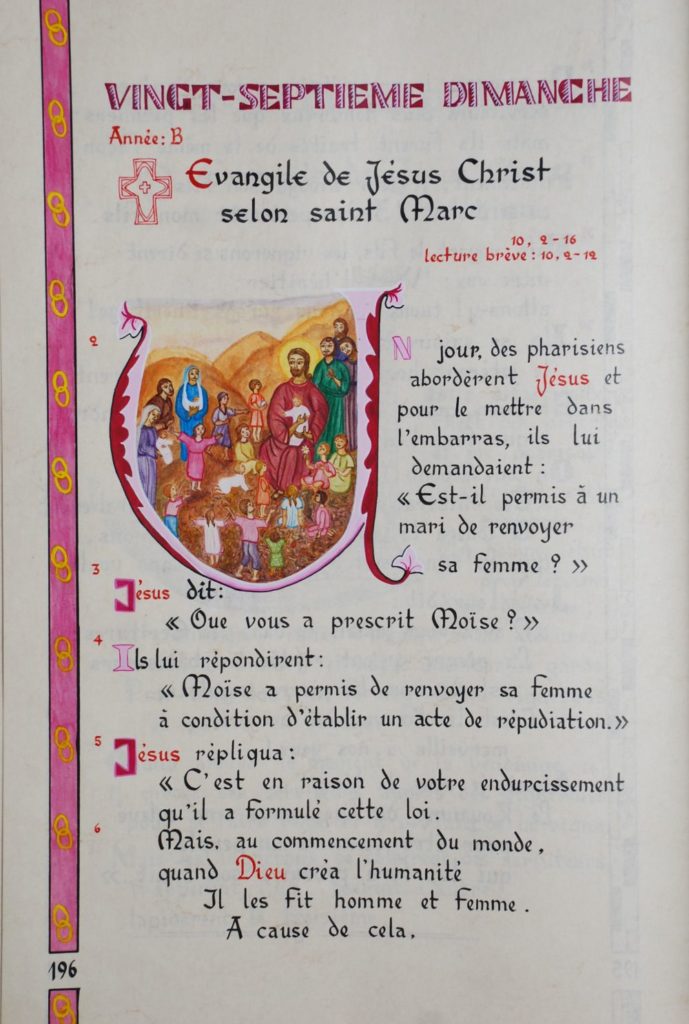 VINGT-SEPTIEME DIMANCHE
Année: B
Evangile de Jésus Christ
selon saint Marc
10, 2-16
lecture brève: 10, 2-12
2
UN jour, des pharisiens
abordèrent Jésus et
pour le mettre dans
l'embarras, ils lui
demandaient :
« Est-il permis à un
mari de renvoyer
sa femme ? »
3
Jésus dit:
« Que vous a prescrit Moïse ? »
4
Ils lui répondirent :
« Moïse a permis de renvoyer sa femme
à condition d'établir un acte de répudiation. »
5
Jésus répliqua :
« C'est en raison de votre endurcissement
qu'il a formulé cette loi.
6
Mais, au commencement du monde,
quand Dieu créa l'humanité
Il les fit homme et femme.
A cause de cela,
196